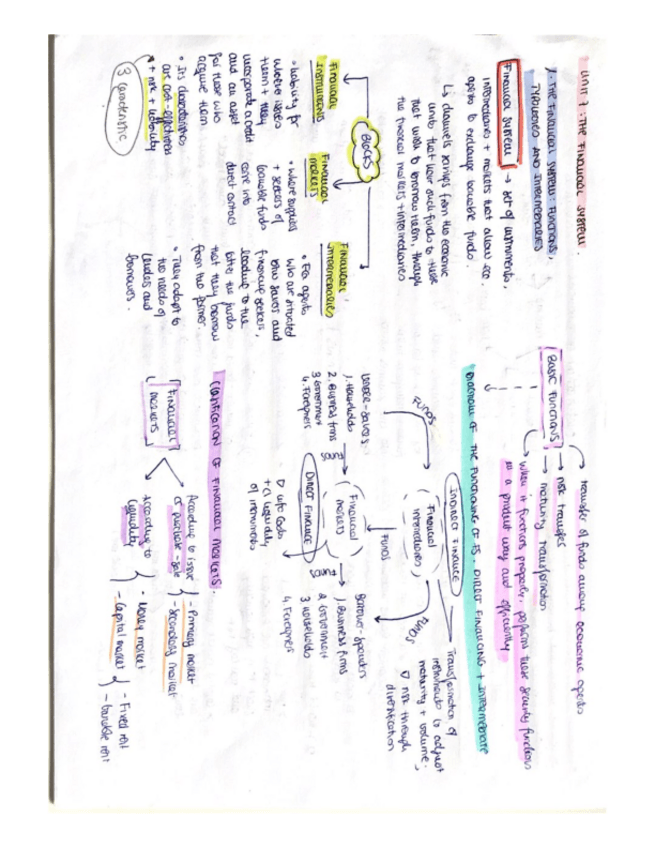 UNIT 7: THE FINANCIAL SYSTEM.
1. THE FINANCIAL SYSTEM: FUNCTIONS,
TYPOLOGIES AND INTERMEDIARIES
FINANCIAL SYSTEM → set of instruments,
intermediaries + markets that allow eco.
agents to exchange loanable funds.
↳ channels savings from the economic
units that have such funds to those
that wish to borrow them, through
the financial markets + intermediaries
BLOCKS
FINANCIAL
INSTRUMENTS
• liability for
whoever issues
them + they
incorporate a credit
and an asset
for those who
acquire them
• Its characteristics
are cost-effectiveness
+ risk + liquidity
3 characteristic
FINANCIAL
MARKETS
• where suppliers
+ seekers of
loanable funds
come into
direct contact
FINANCIAL
INTERMEDIARIES
• Eco agents
who are situated
btw savers and
financing seekers,
lending to the
latter the funds
that they borrow
from the former.
• They adapt to
the needs of
lenders and
borrowers.
BASIC FUNCTIONS
→ transfer of funds among economic agents
→ risk transfers
→ maturity transformation
→ when it functions properly, performs these {}functions
in a product way and efficiently
DIAGRAM OF THE FUNCTIONING OF FS. DIRECT FINANCING + INTERMEDIATE
INDIRECT FINANCE
Transformation of
instruments to adjust
maturity + volume;
∇ risk through
diversification
FUNDS
Financial
intermediaries
FUNDS
FUNDS
Lender-savers
1. Households
2. Business firms
3. Government
4. Foreigners
Financial
markets
Borrower-spenders
1. Business firms
2. Government
3. Households
4. Foreigners
DIRECT FINANCE
∇ info costs
+ liquidity
of instruments
CLASSIFICATION OF FINANCIAL MARKETS.
FINANCIAL
MARKETS
According to issue
or purchase-sale
- Primary market
- Secondary market
According to
liquidity
- Money market
- Capital market
- Fixed rent
- Variable rent